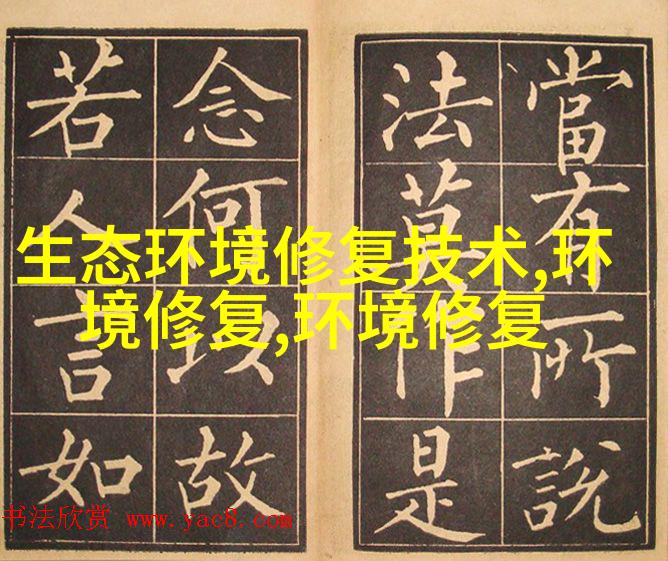 當有所說
法莫作是
念何以故
若人言如
生态环境修复技术,环
境修复,环境修复
书法欣赏 www.yac8.com